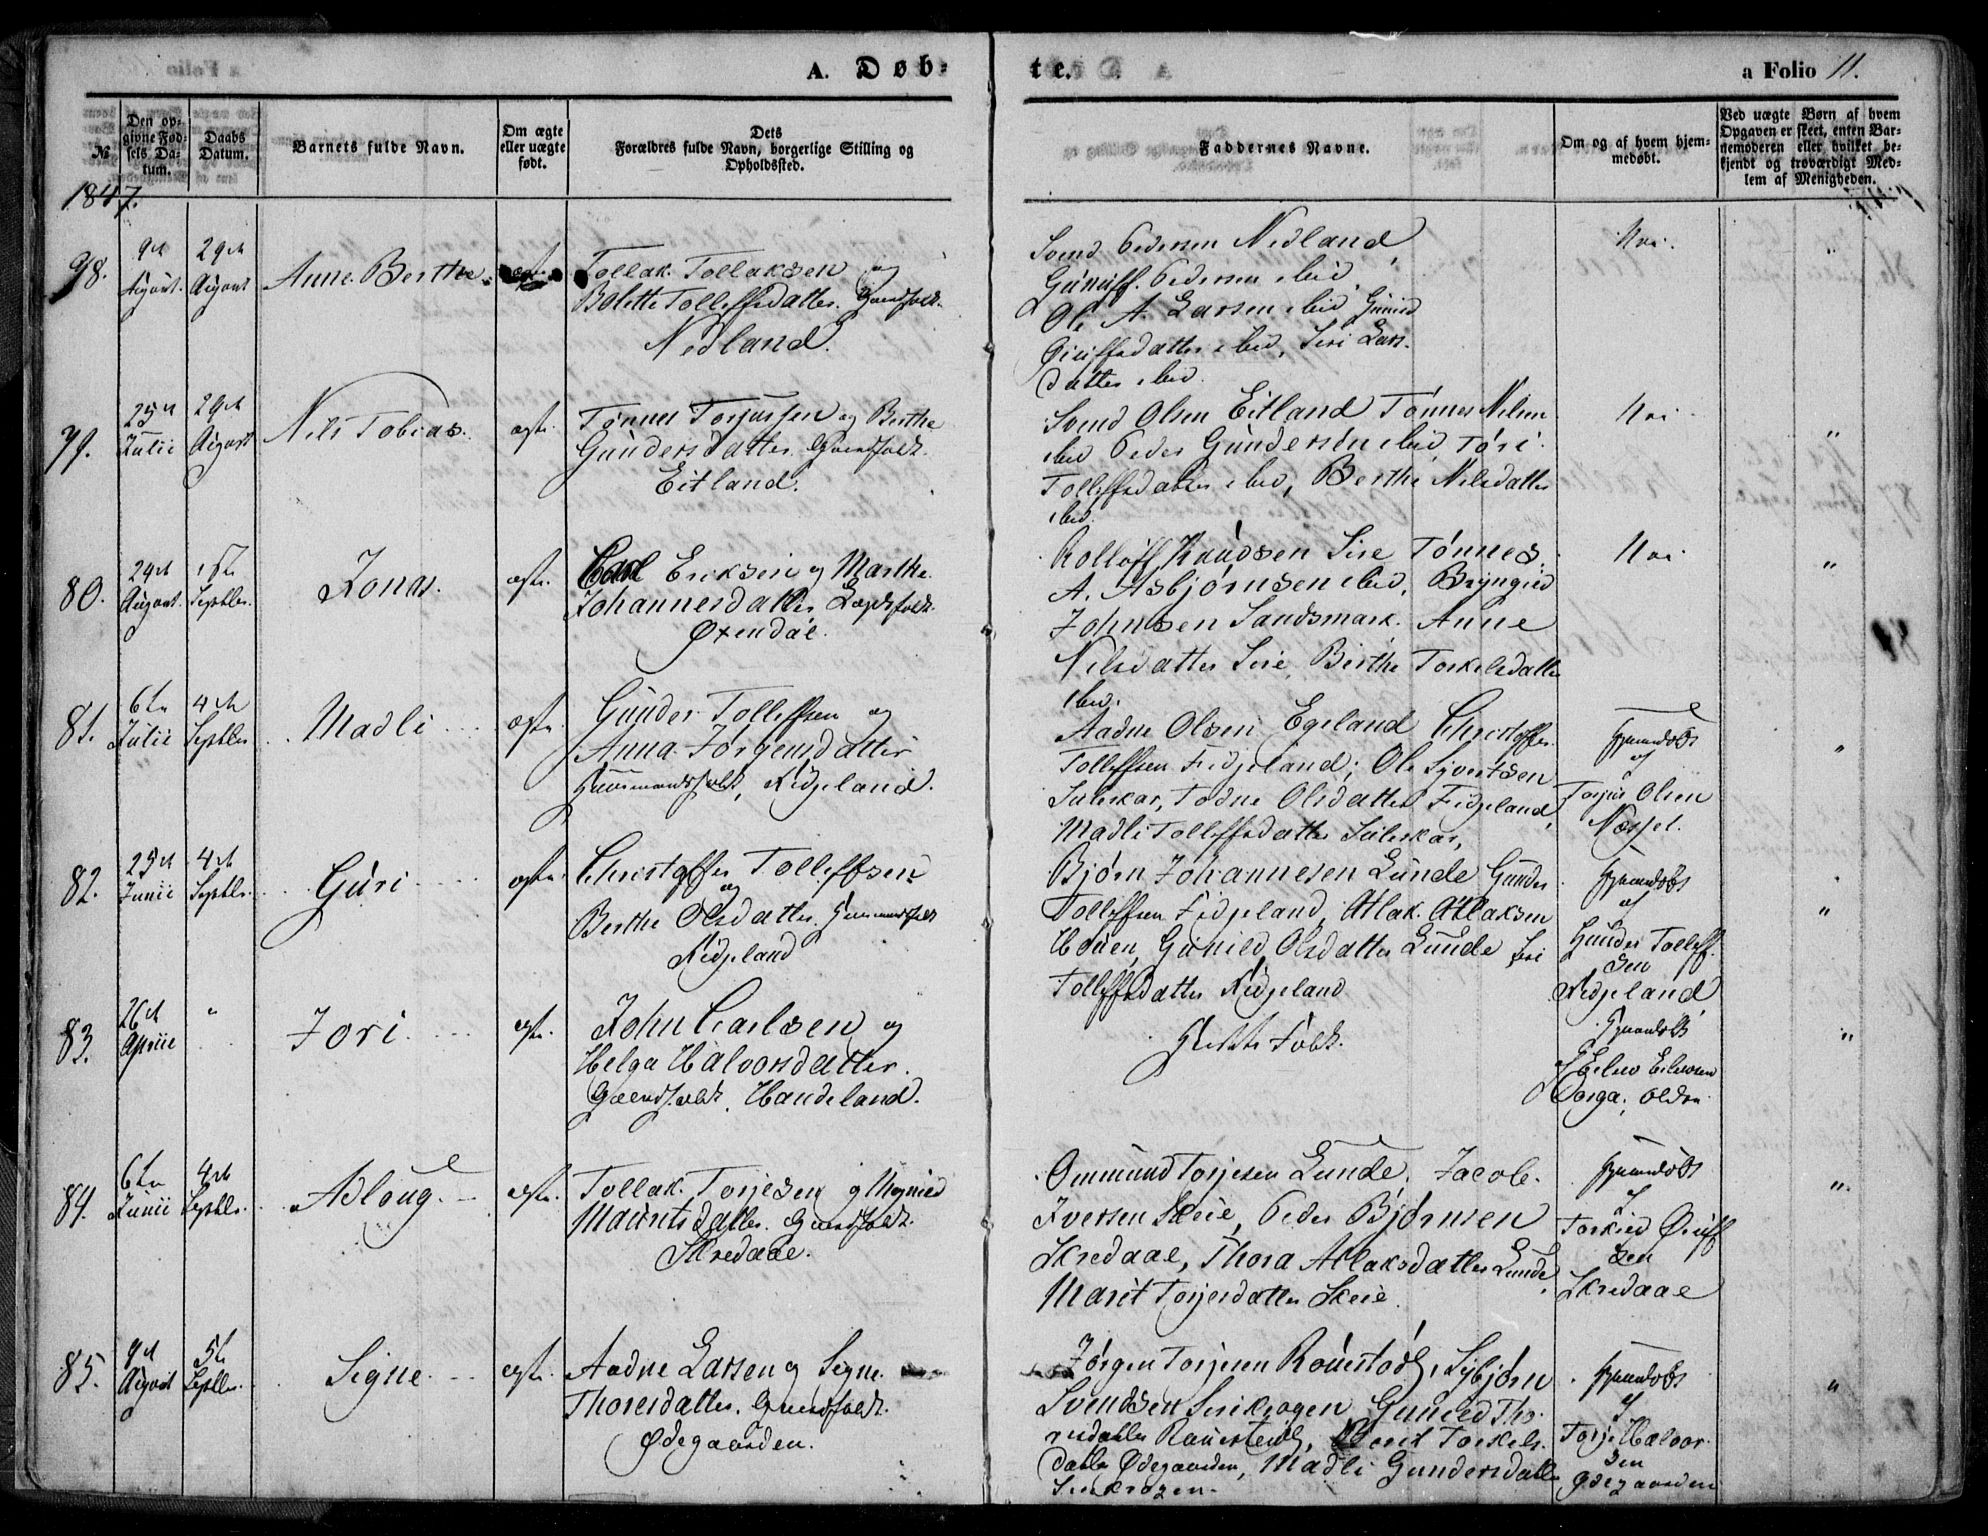 A. Døb-
te.
a Folio 11.
№
Den op-
givne Fød-
sels Da-
tum.
Daabs
Datum.
Barnets fulde Navn.
Om ægte
eller uægte
født.
Dets
Forældres fulde Navn, borgerlige Stilling og
Opholdssted.
Faddernes Navne.
Om og af hvem hjem-
medøbt.
Ved uægte Børn af hvem
Opgaven er skeet, enten Bar-
nemoderen eller hvilket be-
kjendt og troværdigt Med-
lem af Menigheden.
1847.
98.
9de
August.
29de
August
Anne Berthe
Tollak Tollaksen og
Bolette Tolleffsdatter. Gaardfolk.
Nedland.
Svend Pedersen Nedland,
Gunuff. Pedersen ibid,
Ole A. Larsen ibid Gunild
datter ibid, Siri Lars-
datter ibid.
Nei.
"
79.
25de
Julii
29de
August
Nils Tobias.
ægte.
Tønnes Torjussen og Berthe
Gundersdatter Gaardfolk.
Eitland.
Svend Olsen Eitland Tønnes Nilsen
ibid Peder Gundersen ibid, Tori
Tolleffsdatter ibid, Berthe Nilsdatter
ibid.
Nei.
"
80.
29de
August.
1ste
Septbr.
Jonas.
ægte.
Carl Eriksen og Marthe
Johannesdatter Lægdsfolk.
Øxendal.
Rolløff Knudsen Sire Tønnes
A. Asbjørnsen ibid, Bryngild
Johnsen Sandsmark. Anne
Nilsdatter Sire, Berthe Torkelsdatter
ibid.
Nei.
"
81.
6te
Julii
4de
Septbr
Madli
ægte.
Gunder Tolleffsen og
Anna Jørgensdatter
Huusmandsfolk, Fidjeland.
Aadne Olsen Egeland Christoffer
Tolleffsen Fidjeland, Ole Sivertsen
Suleskar, Todne Olsdatter Fidjeland,
Madli Tolleffsdatter Suleskar,
Hjemdøbt
af
Torjus Olsen
"
82.
25de
Junii
4de
Septbr.
Guri
ægte.
Christoffer Tolleffsen
og
Berthe Olsdatter. Huusmandsfolk
Fidjeland
Bjørn Johannesen Lunde Gunder
Tolleffsen Fidjeland, Atlak Atlaksen
Houen, Gunild Olsdatter Lunde Siri
Tolleffsdatter Fidjeland
Hjemdøbt
af
Gunder Tolleff-
sen
Fidjeland
"
83.
26de
Aprili
"
Jori
ægte.
John Carlsen og
Helga Halvorsdatter.
Gaardfolk, Haudeland.
Folk.
Hjemdøbt
af Eilev Eilevsen
"
84.
6te
Junii
4de
Septbr.
Adloug.
ægte.
Tollak Torjesen og Magnild
Mauritsdatter. Gaardfolk.
Skredaae.
Ommund Torjesen Lunde. Jacob
Iversen Skeie, Peder Bjørnsen
Skredaae, Thora Atlaksdatter Lunde,
Marit Torjesdatter Skeie.
Hjemdøbt
af
Torkild
sen
Skredaae
"
85.
9de
August
5te
Septbr.
Signe.
ægte.
Aadne Larsen og Signe
Thoresdatter. Gaardfolk.
Ødegaarden.
Jørgen Torjesen Rouestøl, Sibjørn
Svendsen Sirikrogen Gunild Tho-
resdatter Rouestøl, Berit Torkels-
datter Ødegaarden, Madli Gundersdatter
Sirikrogen.
Hjemdøbt
af
Torje Halvor-
sen
Ødegaarden
"